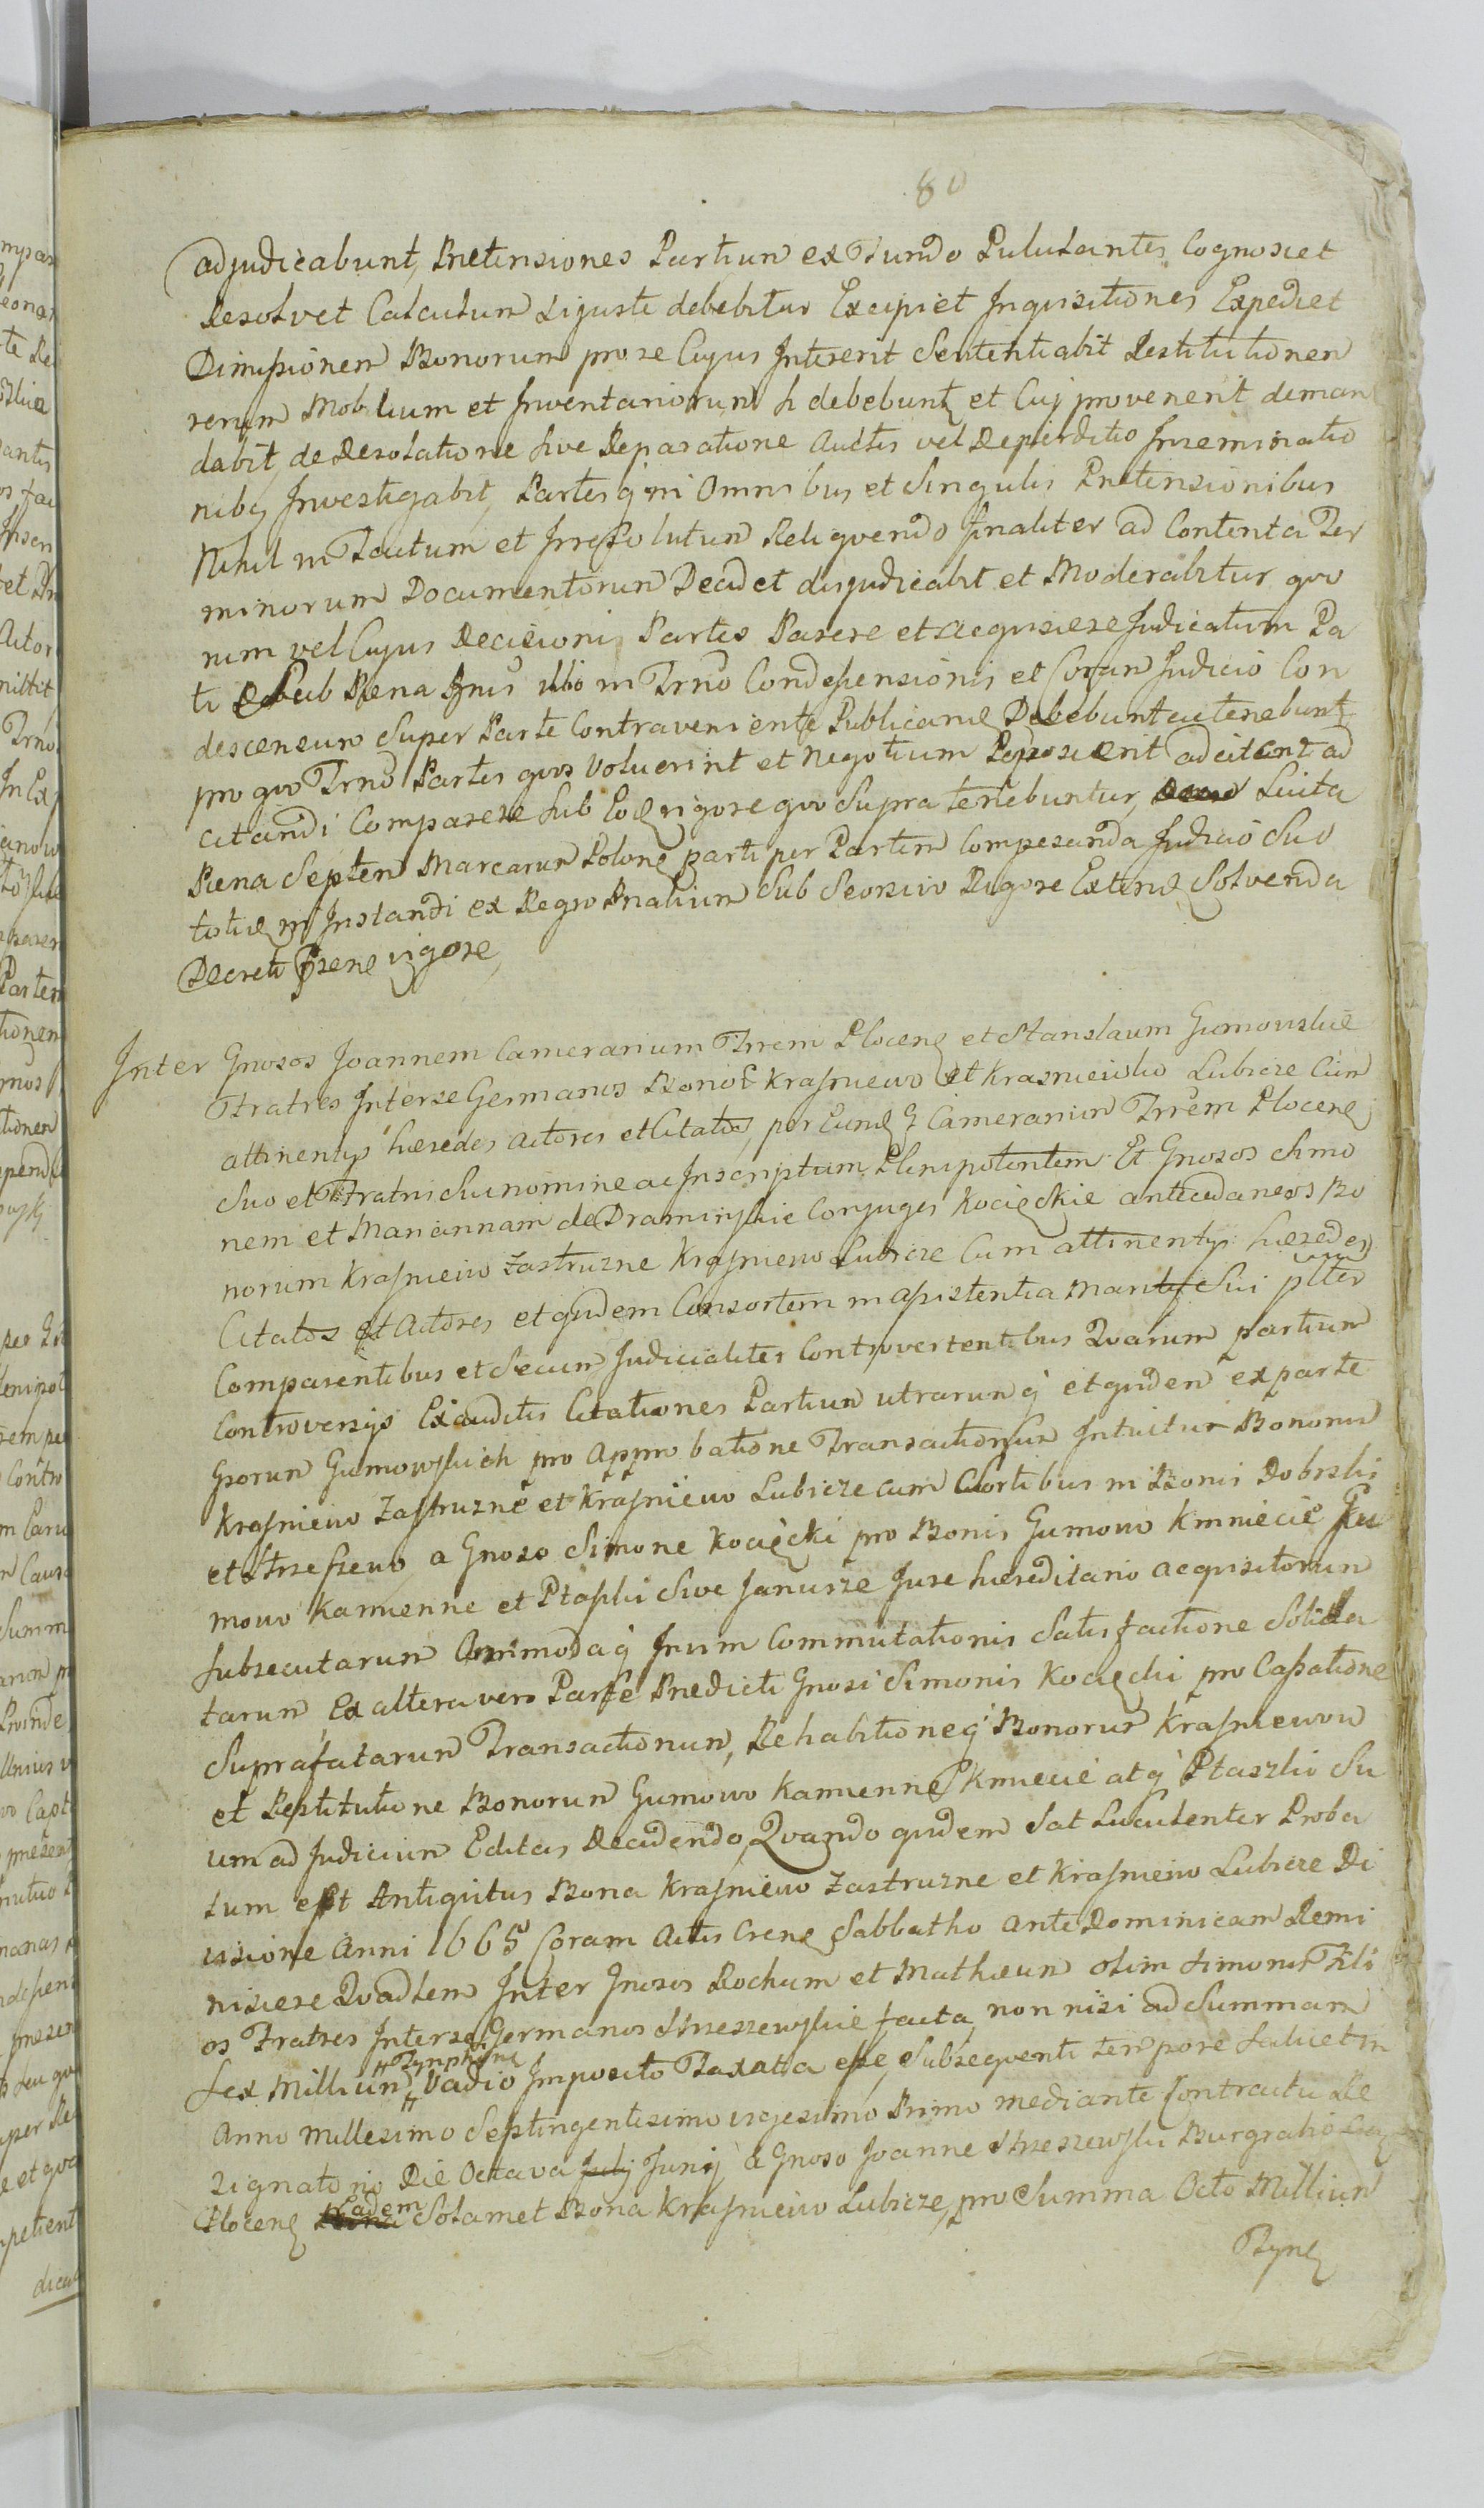 80
adjudicabunt, Prætensiones Partium ex Fundo Pulutantes Cognoscet
Resolvet Calculum si juste debebitur Excipiet Inquisitiones Expediet
Dimissionem Bonorum pro re Cujus Intererit Sententiabit Restitutionem
rerum Mobilium et Inventariorum si debebunt et Cuj provenerit deman
dabit, de Desolatione sive Reparatione Auctis vel Deperditis Inseminatio
nibq Investigabit, Partes q in Omnibus et Singulis Prætensionibus
Nihil in Tactum et Irresolutum Relinquendo finaliter ad Contenta Ter
minorum Documentorum Decidet disjudicabit et Moderabitur quo
rum vel Cujus Decisioni Partes Parere et acquiescere Judicatum Pa
ti sub Pæna in Trno Condescensionis et Coram Judicio Con
descensivo Super Parte Contraveniente Publicand Debebunt ac tenebunt
pro quo Trno Partes quos Voluerint et Negotium Poposcerit adcitent ad
citandi Comparere sub Eod rigore quo Supra tenebuntur, Luita
Pæna Septem Marcarum Polon parti per Partem Compesanda Judicio Suo
totid in Instandi ex Regro Pnatium Sub Seorsivo Rigore Extend Solvenda
Decreti Præne vigore,
Inter Gnosos Joannem Camerarium Trrem Plocen et Stanislaum Gumowskie
Fratres Interse Germanos Bonor Krasniewo et Krasniewko Lubicze Cum
attinentys hæredes actores et Citatos, per Eund G Camerarium Trrem Plocen
Suo et Fratris Sui nomine ac Inscriptum Plenipotentem Et Gnosos Simo
nem et Mariannam de Draminskie Conjuges Kocięckie antecedaneos Bo
norum Krasniewo Zastruzne Krasniewo Lubicze Cum attinentys hæredes
Citatos et Actores et quidem Consortem in assistentia Mariti Sui plter
Comparentibus et Secum Judicialiter Controvertentibus Quarum partium
Controversys Exauditis Citationes Partium utrarumq et quidem ex parte
Gsorum Gumowskich pro Approbatione Transactionum Intuitu Bonorum
Krasniewo Zastruzne et Krasniewo Lubicze cum Sortibus in Bonis Dobrski
et Strzeszewo, a Gnoso Simone Kocięcki pro Bonis Gumowo Kmniecie Gu
mowo Kamienne et Ptaszki Sive Janusze Jure hæreditario acquisitorum
Subsecutarum Ommodaq Irium Commutationis Satisfactione Solida
tarum Ex altera vero Parte Prædicti Gnosi Simonis Kocięcki pro Cassatione
Suprafatarum Transactionum, Rehabitioneq Bonorum Krasniewow
et Restitutione Bonorum Gumowo Kamienne Kmiecie atq Ptaszki Su
um ad Judicium Editas Decidendo, Quando quidem Sat Luculenter Proba
tum est Antiquitus Bona Krasniewo Zastruzne et Krasniewo Lubicze Di
visione Anni 1665 Coram Actis Crene Sabbatho Ante Dominicam Remi
niscere Quadtem Inter Gnosos Rochum et Mathæum olim Simonis Fili
os Fratres Interse Germanos Strzeszewskie facta, non nisi ad Summam
Sex Millium Tynphone Vadio Imposito Taxata esse, Subsequenti tempore Scilicet in
Anno Millesimo Septingentesimo vigesimo Primo mediante Contractu Re
signatorio Die Octava July Junij a Gnoso Joanne Strzeszewski Burgrabio
Plocen Eadem Solamet Bona Krasniewo Lubicze, pro Summa Octo Millium
Tyne